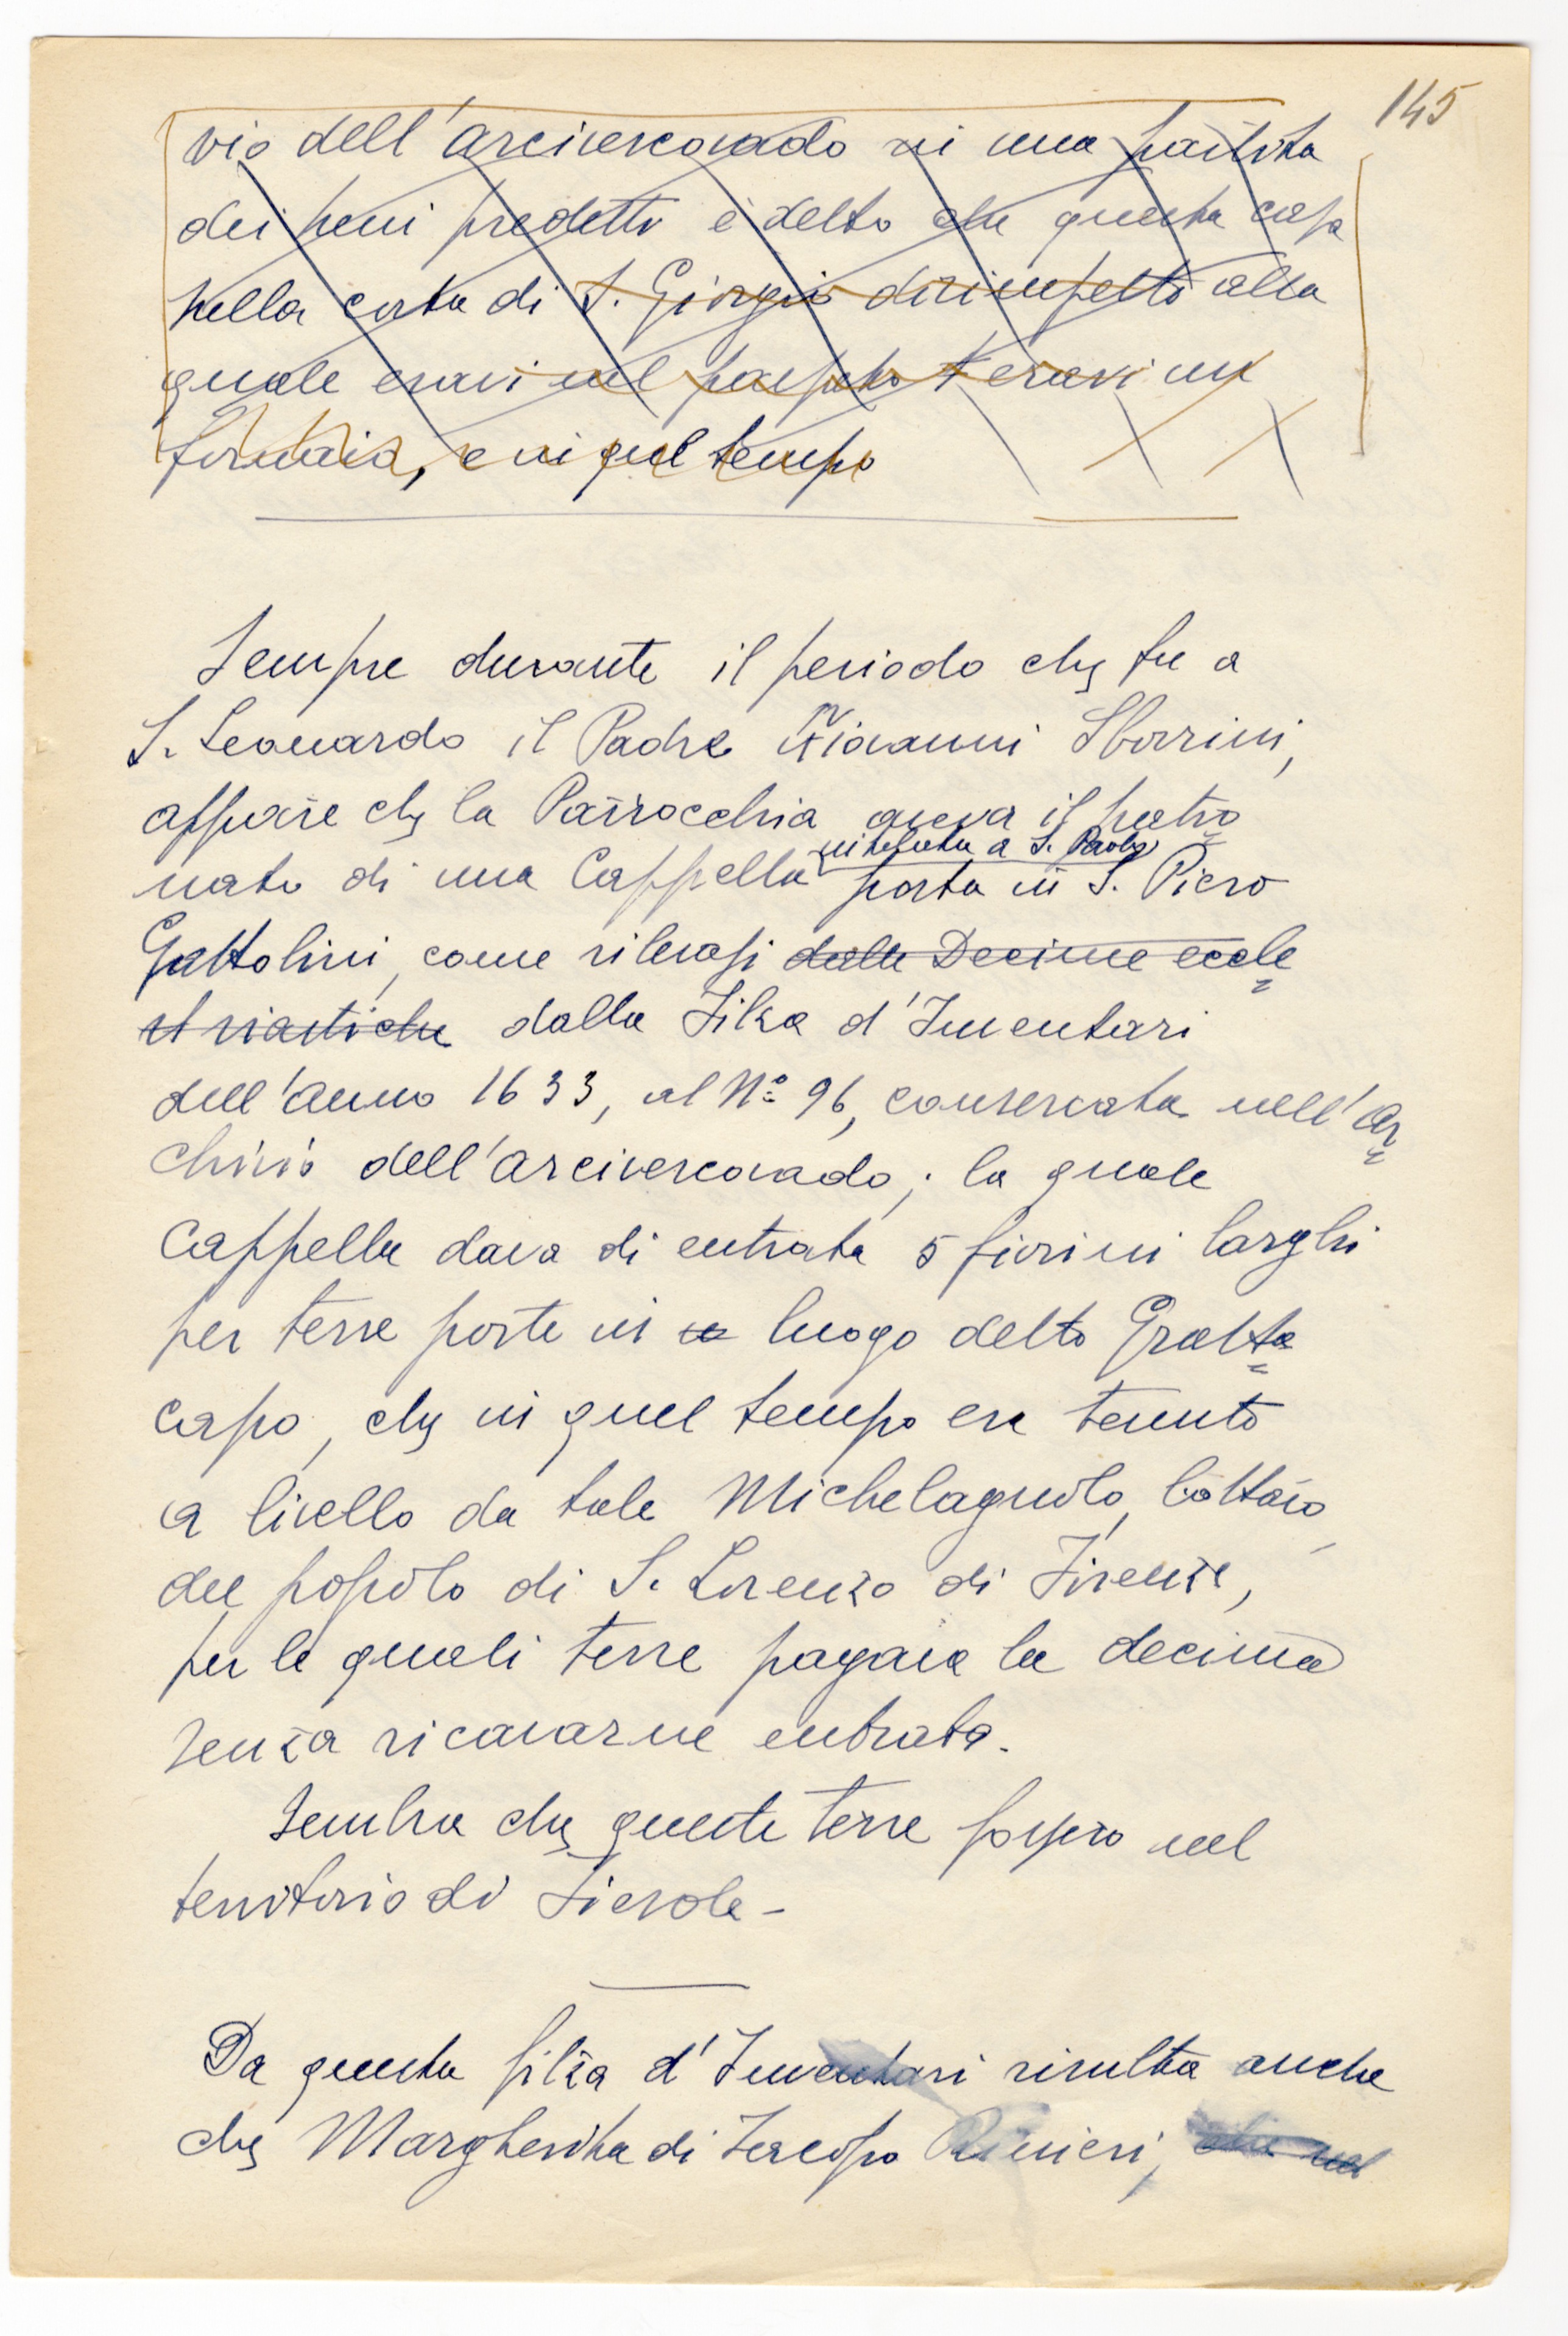 145
vio dell'arcivescovado in una partita
dei beni predetti è detto che questa casa
nella costa di S. Giorgio dirimpetto alla
quale eravi nel passato eravi un
fornaio, e in quel tempo
Sempre durante il periodo che fu a
S. Leonardo il Padre Giovanni Sborrini,
appare che la Parrocchia aveva il patro
intitolata a S. Paolo
nato di una Cappella posta in S. Piero
Gattolini, come rilevasi dalle Decime eccle
siastiche dalla Filza d'Inventari
dell'anno 1633, al Nº 96, conservata nell'Ar
chivio dell'arcivescovado; la quale
Cappella dava di entrata 5 fiorini larghi
per terre poste in luogo detto Gratta
capo, che in quel tempo era tenuto
a livello da tale Michelagnolo, bottaio
del popolo di S. Lorenzo di Firenze,
per le quali terre pagava la decima
senza ricavarne entrata.
Sembra che queste terre fossero nel
territorio di Fiesole -
Da questa filza d'Inventari risulta anche
che Margherita di Jacopo Rinieri, che nel